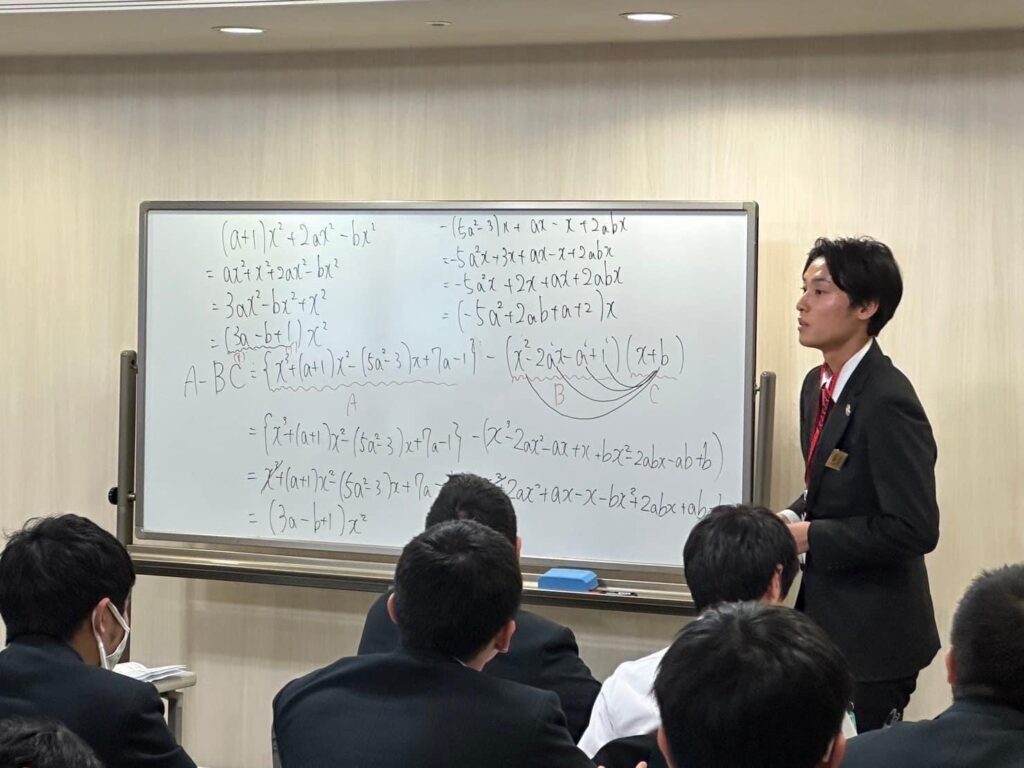 (a+1)x²+2ax²-bx²
= ax²+x²+2ax²-bx²
= 3ax²-bx²+x²
= (3a-b+1)x²
-(5a²-3)x+ax-x+2abx
=-5a²x+3x+ax-x+2abx
=-5a²x+2x+ax+2abx
=(-5a²+2ab+a+2)x
A-BC={x³+(a+1)x²-(5a²-3)x+7a-1}-(x²-2ax-a+1)(x+b)
A B C
={x³+(a+1)x²-(5a²-3)x+7a-1}-(x³-2ax²-ax+x+bx²-2abx-ab+b)
=x³+(a+1)x²-(5a²-3)x+7a 2ax²+ax-x-bx²+2abx+ab
=(3a-b+1)x²